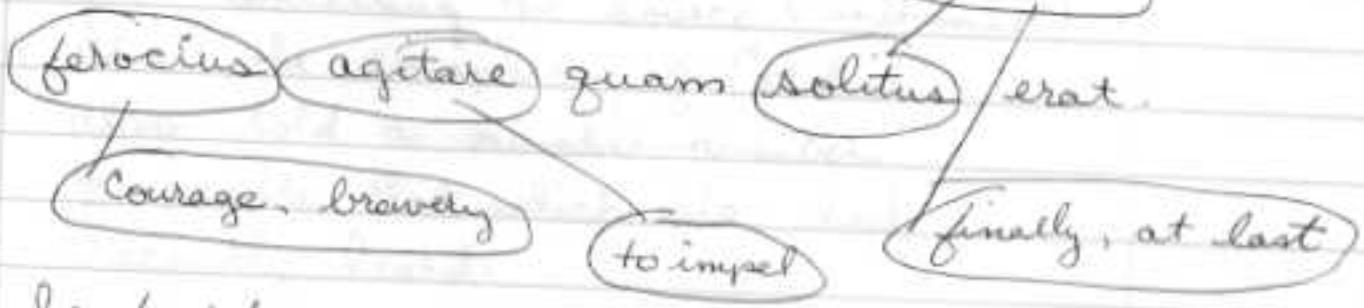 ferocius agitare quam solitus erat.
courage, bravery to impel finally, at last